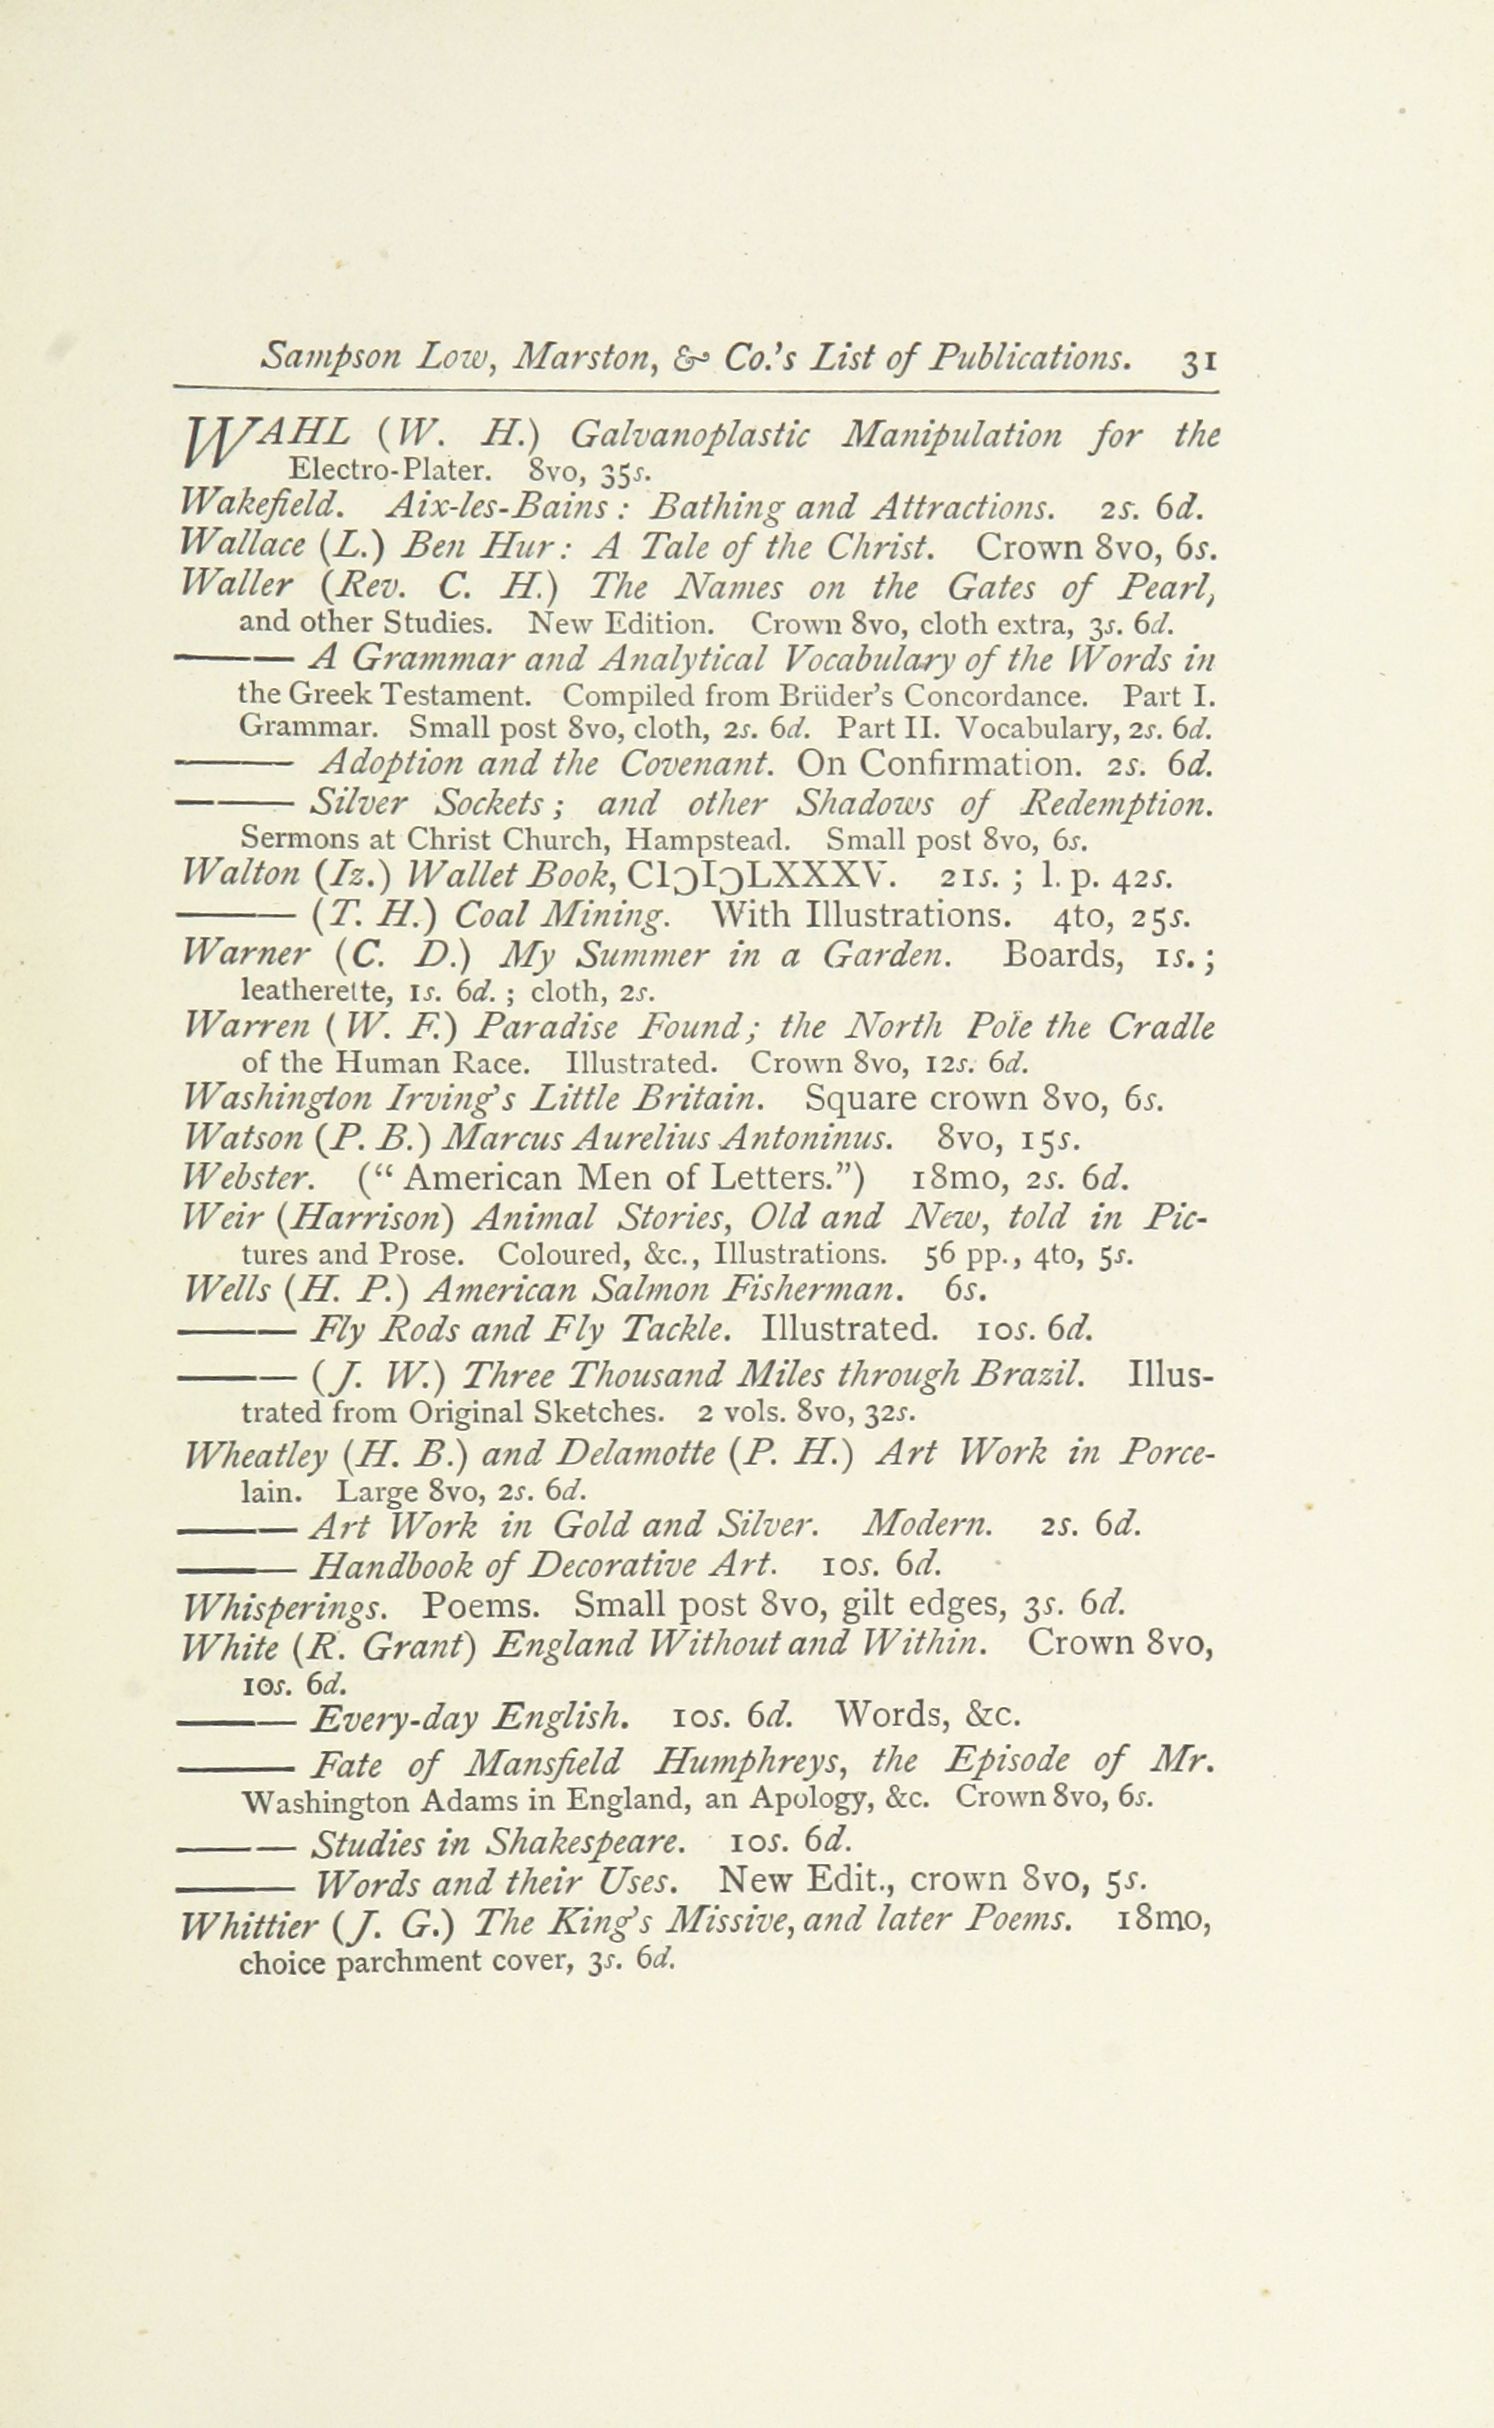 Sampson Low, Marston, & Co.'s List of Publications. 31
WAHL (W. H.) Galvanoplastic Manipulation for the
Electro-Plater. 8vo, 35s.
Wakefield. Aix-les-Bains : Bathing and Attractions. 2s. 6d.
Wallace (L.) Ben Hur: A Tale of the Christ. Crown 8vo, 6s.
Waller (Rev. C. H.) The Names on the Gates of Pearl,
and other Studies. New Edition. Crown 8vo, cloth extra, 3s. 6d.
——— A Grammar and Analytical Vocabulary of the Words in
the Greek Testament. Compiled from Brüder's Concordance. Part I.
Grammar. Small post 8vo, cloth, 2s. 6d. Part II. Vocabulary, 2s. 6d.
——— Adoption and the Covenant. On Confirmation. 2s. 6d.
——— Silver Sockets; and other Shadows of Redemption.
Sermons at Christ Church, Hampstead. Small post 8vo, 6s.
Walton (Iz.) Wallet Book, CIↃIↃLXXXV. 21s. ; l. p. 42s.
——— (T. H.) Coal Mining. With Illustrations. 4to, 25s.
Warner (C. D.) My Summer in a Garden. Boards, 1s. ;
leatherette, 1s. 6d. ; cloth, 2s.
Warren (W. F.) Paradise Found; the North Pole the Cradle
of the Human Race. Illustrated. Crown 8vo, 12s. 6d.
Washington Irving's Little Britain. Square crown 8vo, 6s.
Watson (P. B.) Marcus Aurelius Antoninus. 8vo, 15s.
Webster. (“American Men of Letters.”) 18mo, 2s. 6d.
Weir (Harrison) Animal Stories, Old and New, told in Pic-
tures and Prose. Coloured, &c., Illustrations. 56 pp., 4to, 5s.
Wells (H. P.) American Salmon Fisherman. 6s.
——— Fly Rods and Fly Tackle. Illustrated. 10s. 6d.
——— (J. W.) Three Thousand Miles through Brazil. Illus-
trated from Original Sketches. 2 vols. 8vo, 32s.
Wheatley (H. B.) and Delamotte (P. H.) Art Work in Porce-
lain. Large 8vo, 2s. 6d.
——— Art Work in Gold and Silver. Modern. 2s. 6d.
——— Handbook of Decorative Art. 10s. 6d.
Whisperings. Poems. Small post 8vo, gilt edges, 3s. 6d.
White (R. Grant) England Without and Within. Crown 8vo,
10s. 6d.
——— Every-day English. 10s. 6d. Words, &c.
——— Fate of Mansfield Humphreys, the Episode of Mr.
Washington Adams in England, an Apology, &c. Crown 8vo, 6s.
——— Studies in Shakespeare. 10s. 6d.
——— Words and their Uses. New Edit., crown 8vo, 5s.
Whittier (J. G.) The King's Missive, and later Poems. 18mo,
choice parchment cover, 3s. 6d.